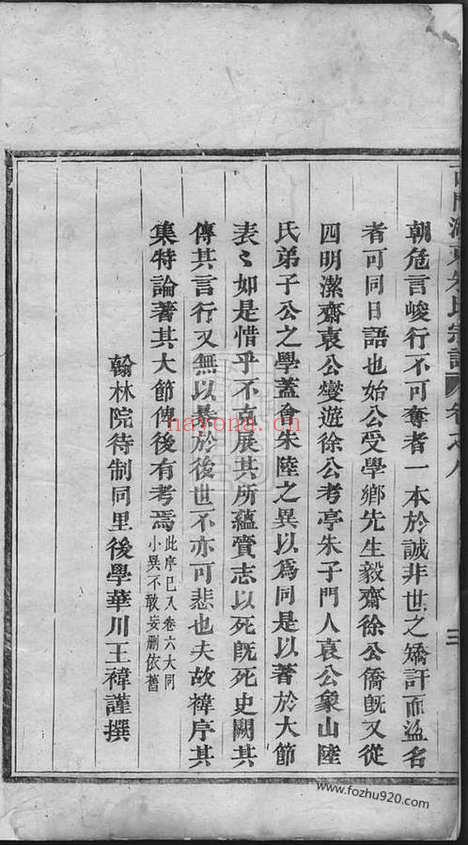 朱氏宗譜
三
朝危言峻行不可奪者一本於誠非世之矯訐而盜名
者可同日語也始公受學鄉先生毅齋徐公僑既又從
四明潔齋袁公燮遊徐公考亭朱子門人袁公象山陸
氏弟子公之學蓋會朱陸之異以爲同是以著於大節
表〻如是惜乎不克展其所蘊賫志以死既死史闕其
傳其言行又無以暴於後世不亦可悲也夫故褘序其
集特論著其大節傳後有考焉
此序已入卷六大同
小異不敢妄刪依舊
翰林院待制同里後學華川王褘謹撰
nayona.cn
www.fozhu920.com